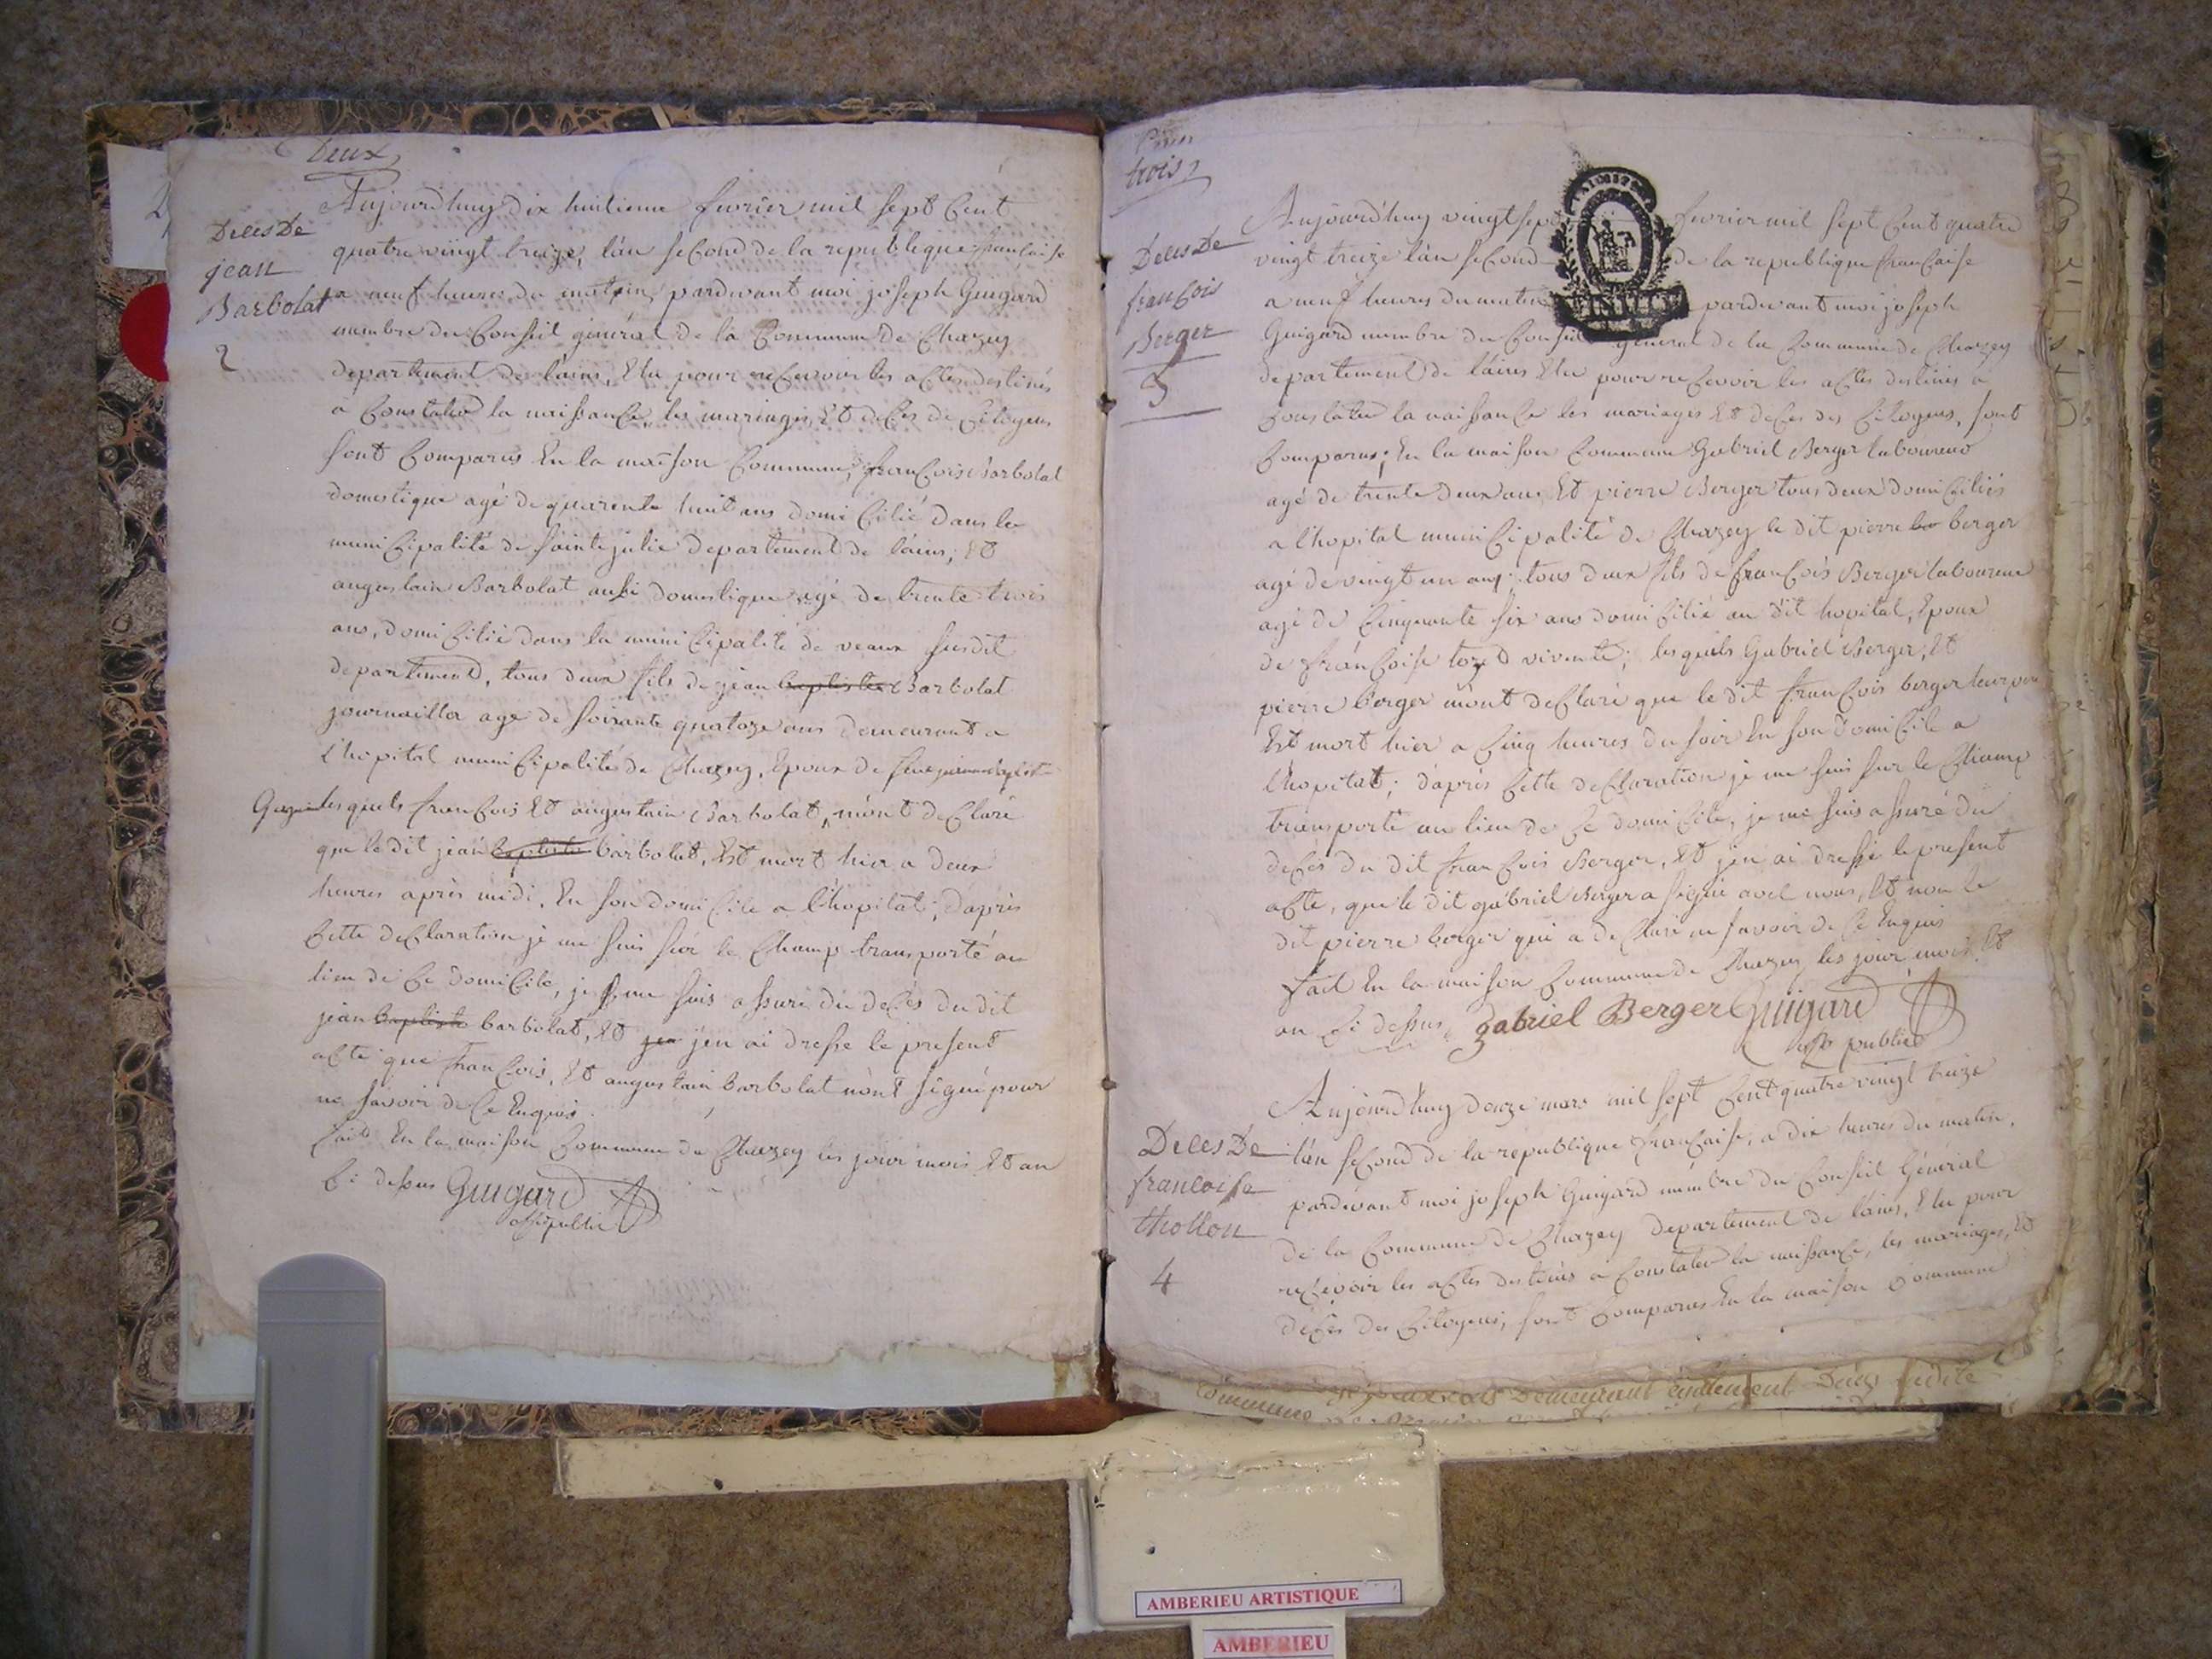 Deux
Deces De
jean
Barbolat
2
Aujourd'huy dix huitieme fevrier mil sept Cent
quatre vingt treize, l'an seCond de la republique française
a neuf heures du matin, pardevant moi joseph Guigard
membre du Conseil général de la Commune De Chazey
departement de l'ains, Elu pour reCevoir les aCtes destinés
a Constater la naissanCe, les mariages, Et deCes de Citoyens
sont Comparus En la maison Commune, franCois Barbolat
domestique agé de quarente huit ans domiCilié dans la
muniCipalité de sainte julie departement de l'ains; Et
augustain Barbolat aussi domestique agé de trente trois
ans, domiCilié dans la muniCipalité de veaux susdit
departement, tous deux fils de jean baptiste Barbolat
journailler age de soixante quatoze ans demeurant a
l'hopital muniCipalité de Chazey, Epoux de feue
lesquels franCois Et augustain Barbolat, m'ont deClaré
que le dit jean baptiste barbolat, Est mort hier a deux
heures après midi, En son domiCile a l'hopital; d'après
Cette deClaration je me suis sur le Champ transporté au
lieu de Ce domiCile, je me suis assuré du deCès du dit
jean baptiste barbolat, Et jen j'en ai dressé le present
aCte que franCois, Et augustain barbolat n'ont signé pour
ne savoir de Ce Enquis.
fait En la maison Commune de Chazey les jour mois Et an
Ci dessus Guigard
off public
trois
Deces De
franCois
Berger
3
Aujourd'huy vingt sept fevrier mil sept Cent quatre
vingt treize l'an seCond de la republique franCaise
a neuf heures du matin pardevant moi joseph
Guigard membre du Conseil général de la Commune de Chazey
departement de l'ains Elu pour reCevoir les aCtes destinés a
Constater la naissanCe les mariages Et deCes des Citoyens, sont
Comparus; En la maison Commune Gabriel Berger laboureur
agé de trente deux ans Et pierre Berger tous deux domiCiliés
a l'hopital muniCipalité de Chazey le dit pierre ber berger
agé de vingt un ans; tous deux fils de franCois Berger laboureur
agé de Cinquante six ans domiCilié au dit hopital, Epoux
de franCoise vivante; lesquels Gabriel Berger, Et
pierre berger m'ont deClaré que le dit franCois berger leur pere
Est mort hier a Cinq heures du soir En son domiCile a
l'hopital; d'après Cette deClaration je me suis sur le Champ
transporté au lieu de Ce domiCile, je me suis assuré du
deCès du dit franCois Berger, Et j'en ai dressé le present
aCte, que le dit gabriel Berger a signé avec nous, Et non le
dit pierre berger qui a deClaré ne savoir de Ce Enquis
fait En la maison Commune de Chazey les jour mois Et
an Ci dessus. gabriel Berger Guigard
off public
Deces De
francoise
thollon
4
Aujourd'huy douze mars mil sept Cent quatre vingt treize
l'an seCond de la republique franCaise, a dix heures du matin,
pardevant moi joseph Guigard membre du Conseil Général
de la Commune de Chazey departement de l'ains, Elu pour
reCevoir les aCtes destinés a Constater la naissanCe, les mariages, Et
deCès des Citoyens, sont Comparus En la maison Commune
Commune Demeurant
AMBERIEU ARTISTIQUE
AMBERIEU